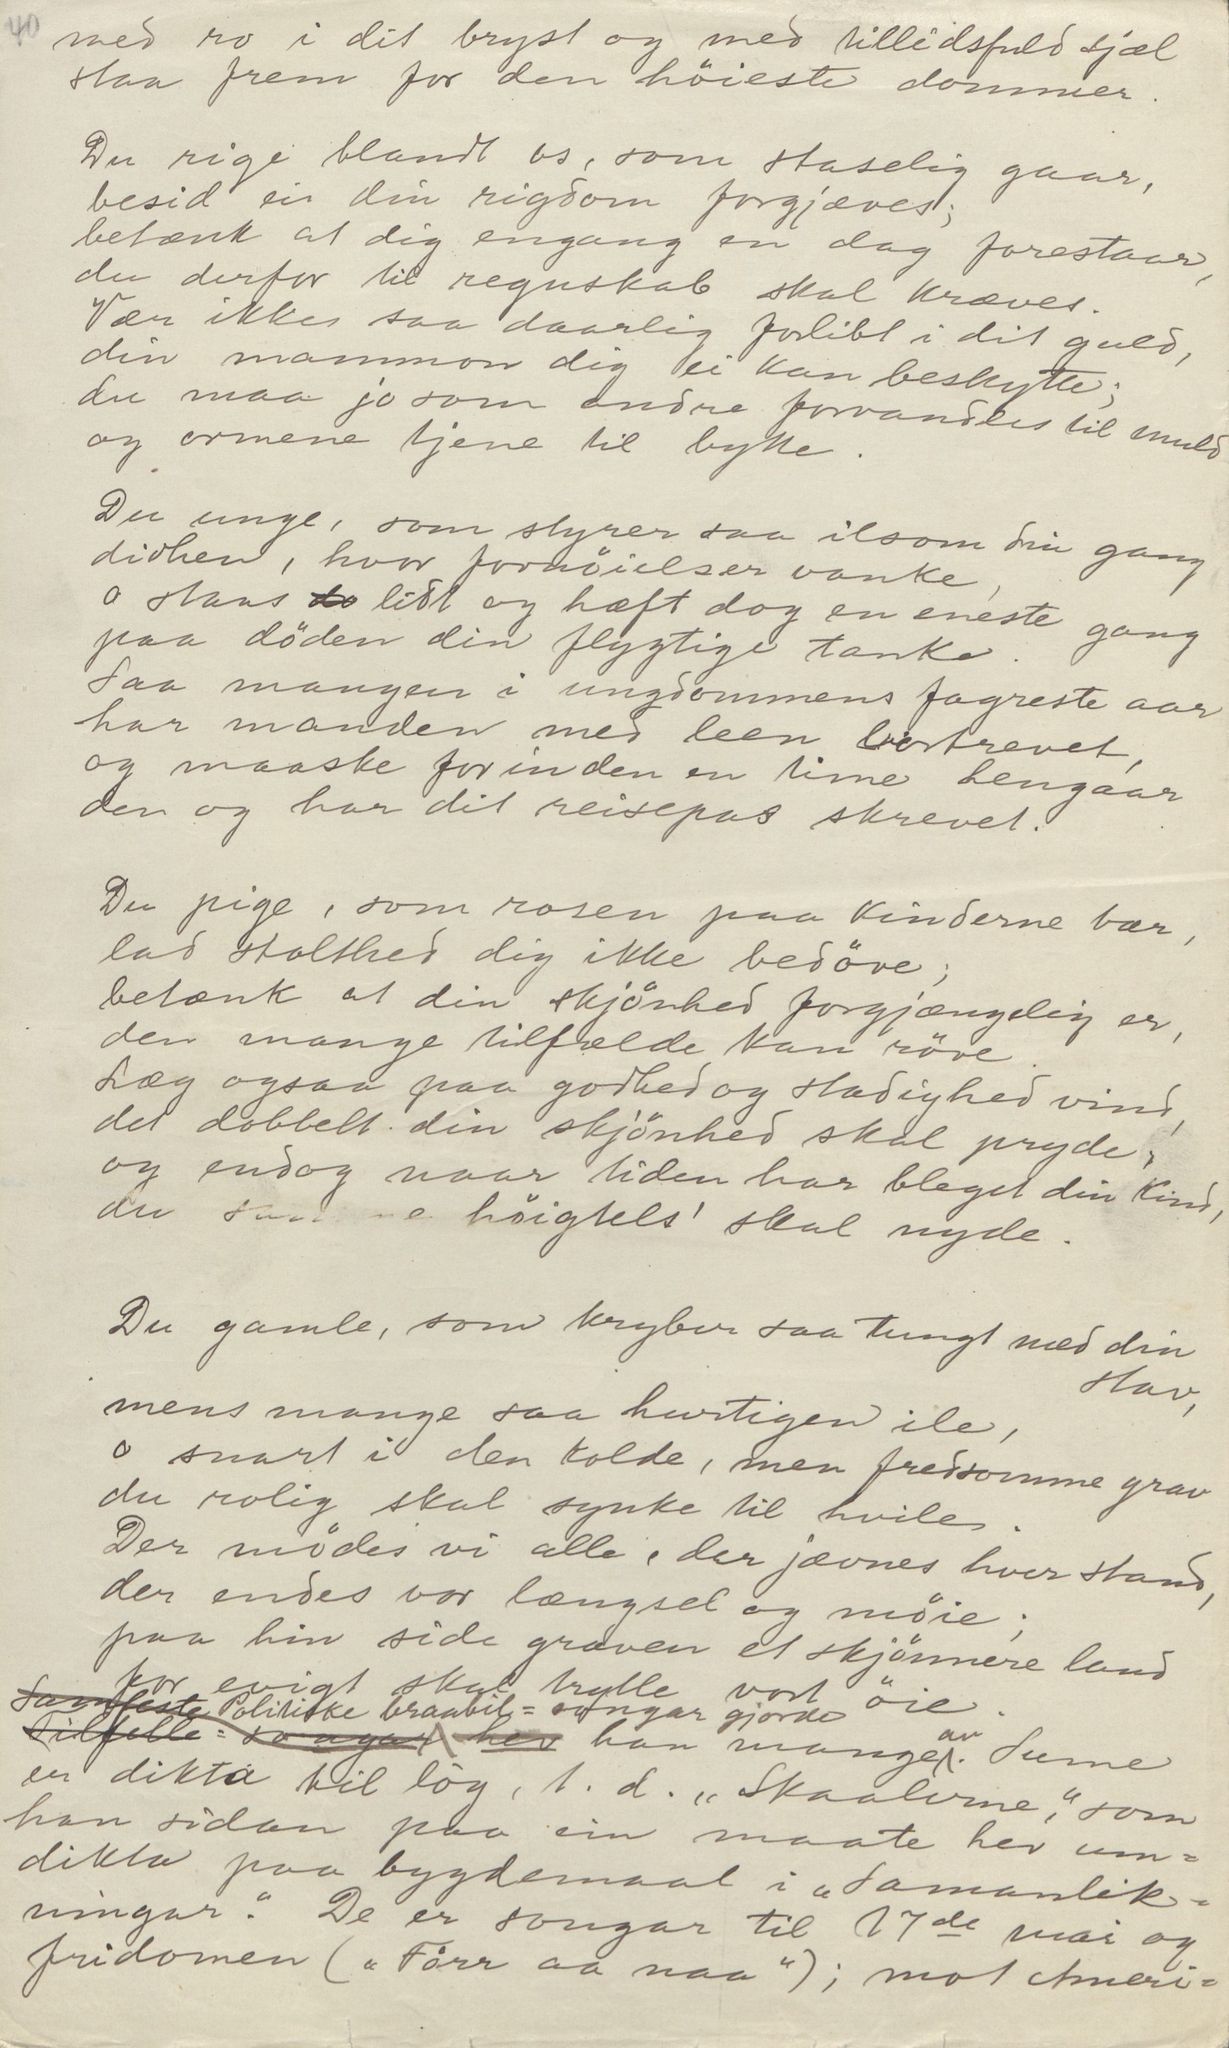 40
med ro i dit bryst og med tillidsfuld sjæl
staa frem for den höieste dommer.
Du rige blandt os, som staselig gaar,
besid ei din rigdom forgjæves;
betænk at dig engang en dag forestaar,
du derfor til regnskab skal kræves.
Vær ikke saa daarlig forlibt i dit guld,
din mammon dig ei kan beskytte;
du maa jo som andre forvandles til muld
og ormene tjene til bytte.
Du unge, som styrer saa ilsom din gang
didhen, hvor fornöielser vanke,
o stans lidt og hæft dog en eneste gang
paa döden din flygtige tanke.
Saa mangen i ungdommens fagreste aar
har manden med leen bortrevet,
og maaske forinden en time hengaar
den og har dit reisepas skrevet.
Du pige, som rosen paa kinderne bær,
lad stolthed dig ikke bedöve;
betænk at din skjönhed forgjængelig er,
den mange tilfælde kan röve.
Læg ogsaa paa godhed og stadighed vind,
det dobbelt din skjönhed skal pryde;
og endog naar tiden har bleget din kind,
du samme höigtels' skal nyde.
Du gamle, som kryber saa tungt med din
stav,
mens mange saa hurtigen ile,
o snart i den kolde, men fredsomme grav
du rolig skal synke til hvile.
Der mödes vi alle, der jævnes hver stand,
der endes vor længsel og möie;
paa hin side graven et skjönnere land
for evigt skal trylle vort öie.
Samfeste Politiske braabit=songar gjorde
Tilfelle=songar hev han mange av. Sume
er dikta til lög, t. d. „Skaalerne", som
han sidan paa ein maate hev um=
dikta paa bygdemaal i „Samanlik=
ningar". De er songar til 17de mai og
fridomen („Förr aa naa"); mot Ameri=